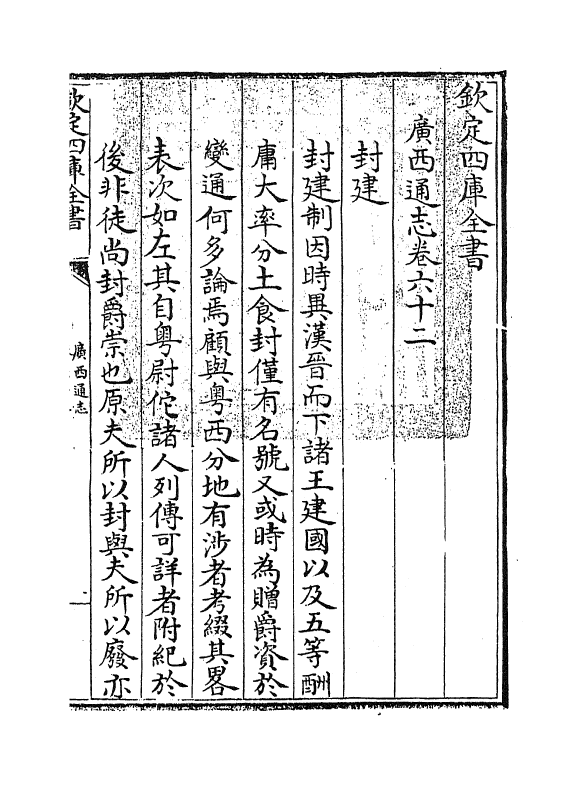 欽定四庫全書
廣西通志卷六十二
封建
封建制因時異漢晉而下諸王建國以及五等酬
庸大率分土食封僅有名號又或時為贈爵資於
變通何多論焉顧與粤西分地有涉者考綴其畧
表次如左其自粤尉佗諸人列傳可詳者附紀於
後非徒尚封爵崇也原夫所以封與夫所以廢亦
欽定四庫全書
廣西通志
一